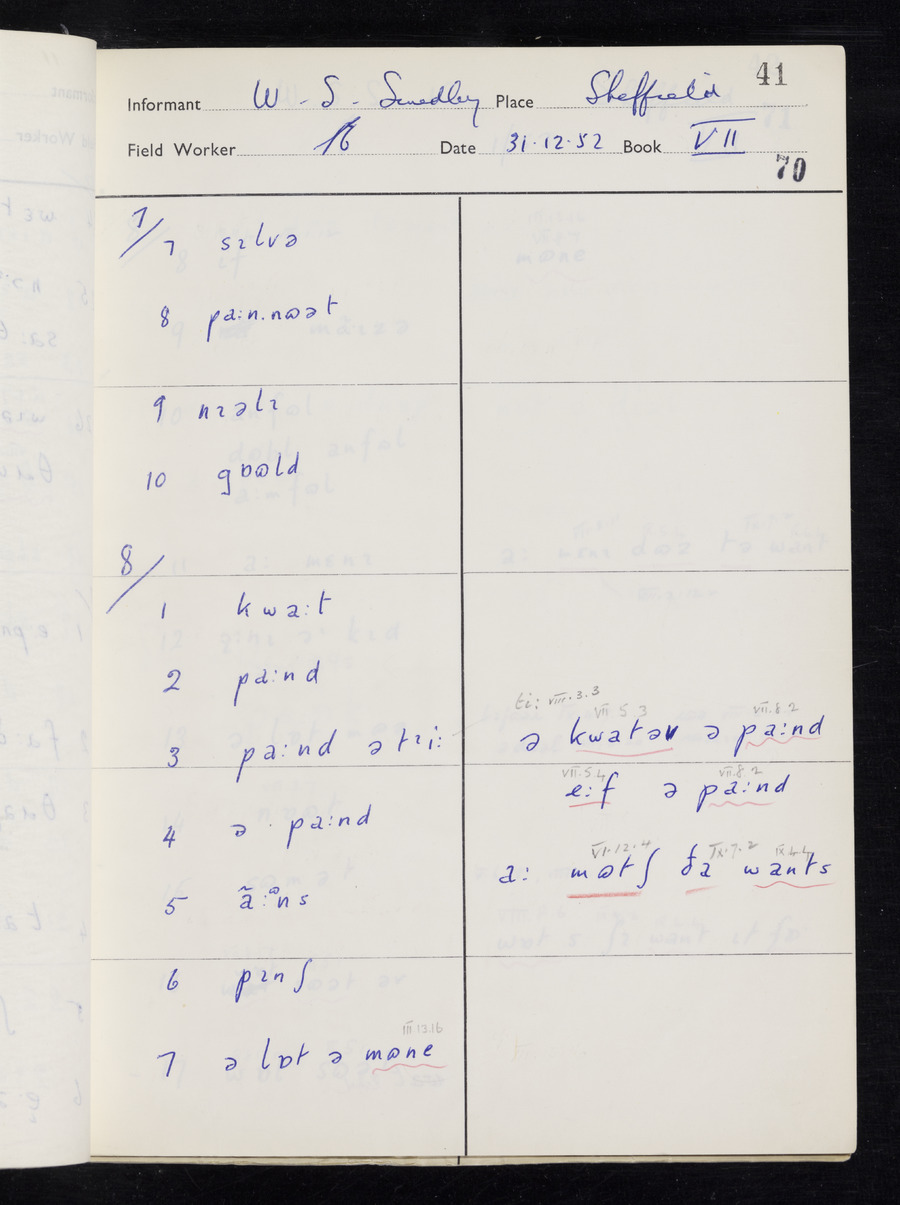 41
Informant W. S. Smedley Place Sheffield
Field Worker Date 31·12·52 Book VII
70
7/
7 sɪlvə
8 pa:n.nɷət
9 nɪəlɪ
10 gɒɷld
8/
1 kwa:t
2 pa:nd
3 pa:nd ətɹi:
4 ə pa:nd
5 ã:ᵊns
6 pɪnʃ
7 ə lɒt ə mɷne
III 13.16
ti: VIII.3.3
VII 5 3 VII.8.2
ə kwatəɹ ə pa:nd
VII.5.4 VII.8.2
e:f ə pa:nd
VI.12.4 IX.7.2 IX.4.4
a: mɷtʃ ða wants